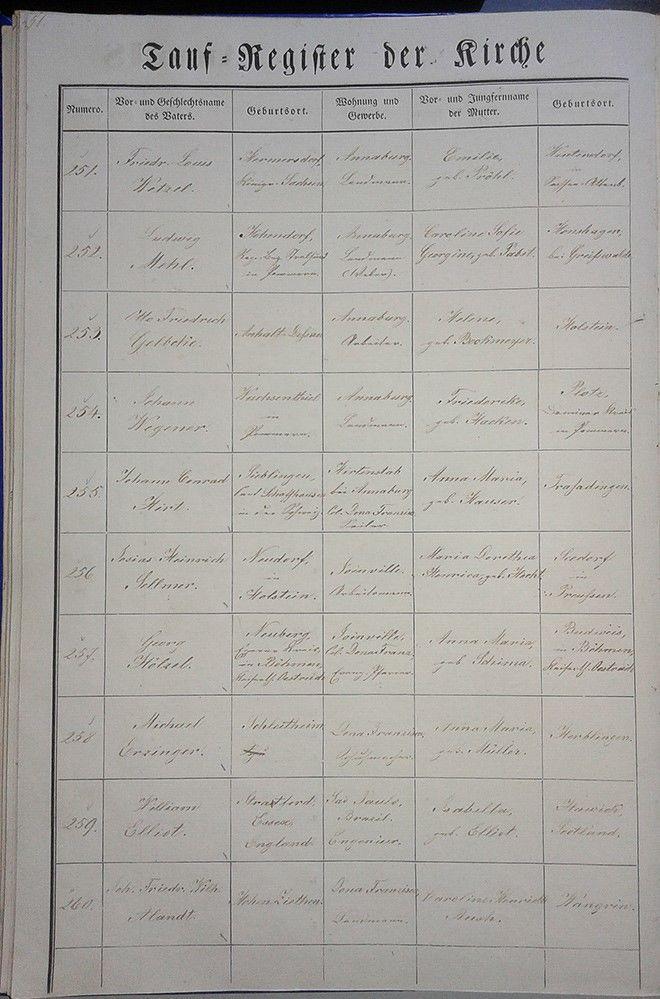 251
Tauf-Register der Kirche
Numero.
Vor- und Geschlechtsname
des Vaters.
Geburtsort.
Wohnung und
Gewerbe.
Vor- und Jungfernname
der Mutter.
Geburtsort.
251.
Friedr. Louis
Wetzel.
Hermersdorf,
Königr. Sachsen
Annaburg.
Landmann.
Emilie,
geb. Pröhl.
in
Sachsen-Altenb.
252.
Ludwig
Mehl.
Hohendorf,
in Pommern
Annaburg.
Landmann
(Weber).
Caroline Sofie
Georgine, geb. Pabst.
Hanshagen,
bei Greifswalde
253.
Otto Friedrich
Anhalt-Dessau
Annaburg.
Arbeiter.
Helene,
geb. Bockmeyer.
Holstein.
254.
Johann
Wegener.
in
Pommern.
Annaburg.
Landmann.
Friedericke,
geb. Hacken.
Kreis
in Pommern.
255.
Johann Conrad
Hirt.
Siblingen,
Schaffhausen
in der Schweiz
bei Annaburg
Col. Dona Francisca
Anna Maria,
geb. Hauser.
Trasadingen.
256
Josias Heinrich
Sellmer.
Neudorf,
in
Holstein.
Joinville.
Arbeitsmann.
Maria Dorothea
Henrica, geb. Hecht.
Seedorf
in
Preussen.
257.
Georg
Hölzel.
Neuberg,
Egerer Kreis,
in Böhmen,
Kaiserth. Oestreich
Joinville,
Col. Dona Franz.
Evang. Pfarrer.
Anna Maria,
geb. Schima.
Budweis,
in Böhmen,
Kaiserth. Oestreich
258
Michael
Erzinger.
Schleitheim,
Dona Francisca,
Schuhmacher.
Anna Maria,
geb. Müller.
Herblingen.
259.
William
Elliot.
Stratford,
Essex,
England
Sao Paulo,
Brasil.
Engenieur.
Isabella,
geb. Elliot.
Hawick,
Scotland.
260.
Joh. Friedr. Wilh.
Mandt.
Hohen Ziethen.
Dona Francisca,
Landmann.
Caroline Henriette
Wangrin.